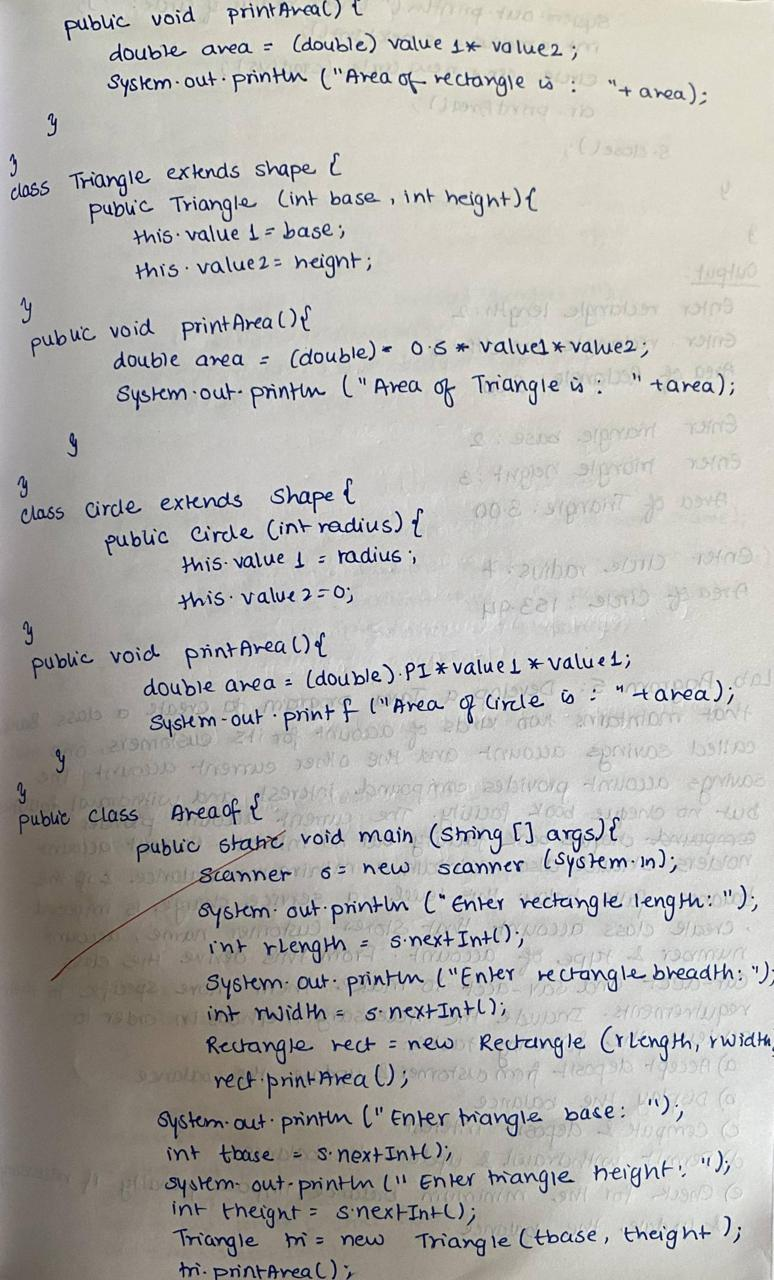 public void printArea() {
double area = (double) value 1* value2;
System.out.println ("Area of rectangle is : "+ area);
}
}
class Triangle extends shape {
public Triangle (int base, int height){
this.value 1 = base;
this.value2 = height;
}
public void printArea(){
double area = (double)* 0.5 * value1*value2;
System.out.println ("Area of Triangle is : " +area);
}
}
class Circle extends Shape {
public Circle (int radius) {
this.value 1 = radius;
this.value2=0;
}
public void printArea(){
double area = (double).PI*value1*value1;
System.out.printf ("Area of Circle is : "+area);
}
}
public class Areaof {
public static void main (String [] args){
Scanner s = new scanner (System.in);
System.out.println ("Enter rectangle length: ");
int rLength = s.nextInt();
System.out.println ("Enter rectangle breadth: ");
int rwidth = s.nextInt();
Rectangle rect = new Rectangle (rLength, rwidth
rect.printArea ();
System.out.println (" Enter triangle base: ");
int tbase = s.nextInt();
System.out.println (" Enter triangle height: ");
int theight = s.nextInt();
Triangle tri = new Triangle (tbase, theight );
tri.printArea();